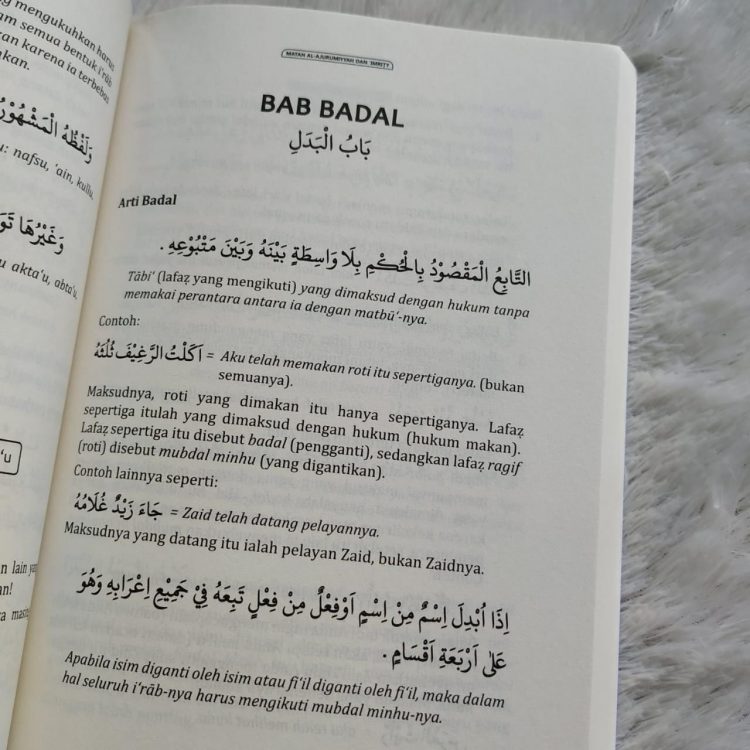 ng mengukuhkan harus
am semua bentuk i'rāb
ran karena ia terbebas
hkan.
وَلَفْظُهُ الْمَشْهُوْرُ
u: nafsu, 'ain, kullu,
وَغَيْرُهَا تَوَ
u akta'u, abta'u,
'u
n lain yan
an!
ya masng
MATAN AL-AJURUMIYYAH DAN 'IMRITY
BAB BADAL
بَابُ الْبَدَلِ
Arti Badal
التَّابِعُ الْمَقْصُوْدُ بِالْحُكْمِ بِلَا وَاسِطَةٍ بَيْنَهُ وَبَيْنَ مَتْبُوْعِهِ .
Tābi' (lafaẓ yang mengikuti) yang dimaksud dengan hukum tanpa
memakai perantara antara ia dengan matbū'-nya.
Contoh:
اَكَلْتُ الرَّغِيْفَ ثُلُثَهُ = Aku telah memakan roti itu sepertiganya. (bukan
semuanya).
Maksudnya, roti yang dimakan itu hanya sepertiganya. Lafaẓ
sepertiga itulah yang dimaksud dengan hukum (hukum makan).
Lafaẓ sepertiga itu disebut badal (pengganti), sedangkan lafaẓ ragif
(roti) disebut mubdal minhu (yang digantikan).
Contoh lainnya seperti:
جَاءَ زَيْدٌ غُلَامُهُ = Zaid telah datang pelayannya.
Maksudnya yang datang itu ialah pelayan Zaid, bukan Zaidnya.
اِذَا اُبْدِلَ اِسْمٌ مِنْ اِسْمٍ اَوْفِعْلٌ مِنْ فِعْلٍ تَبِعَهُ فِيْ جَمِيْعِ اِعْرَابِهِ وَهُوَ
عَلَى اَرْبَعَةِ اَقْسَامٍ .
Apabila isim diganti oleh isim atau fi'il diganti oleh fi'il, maka dalam
hal seluruh i'rāb-nya harus mengikuti mubdal minhu-nya.